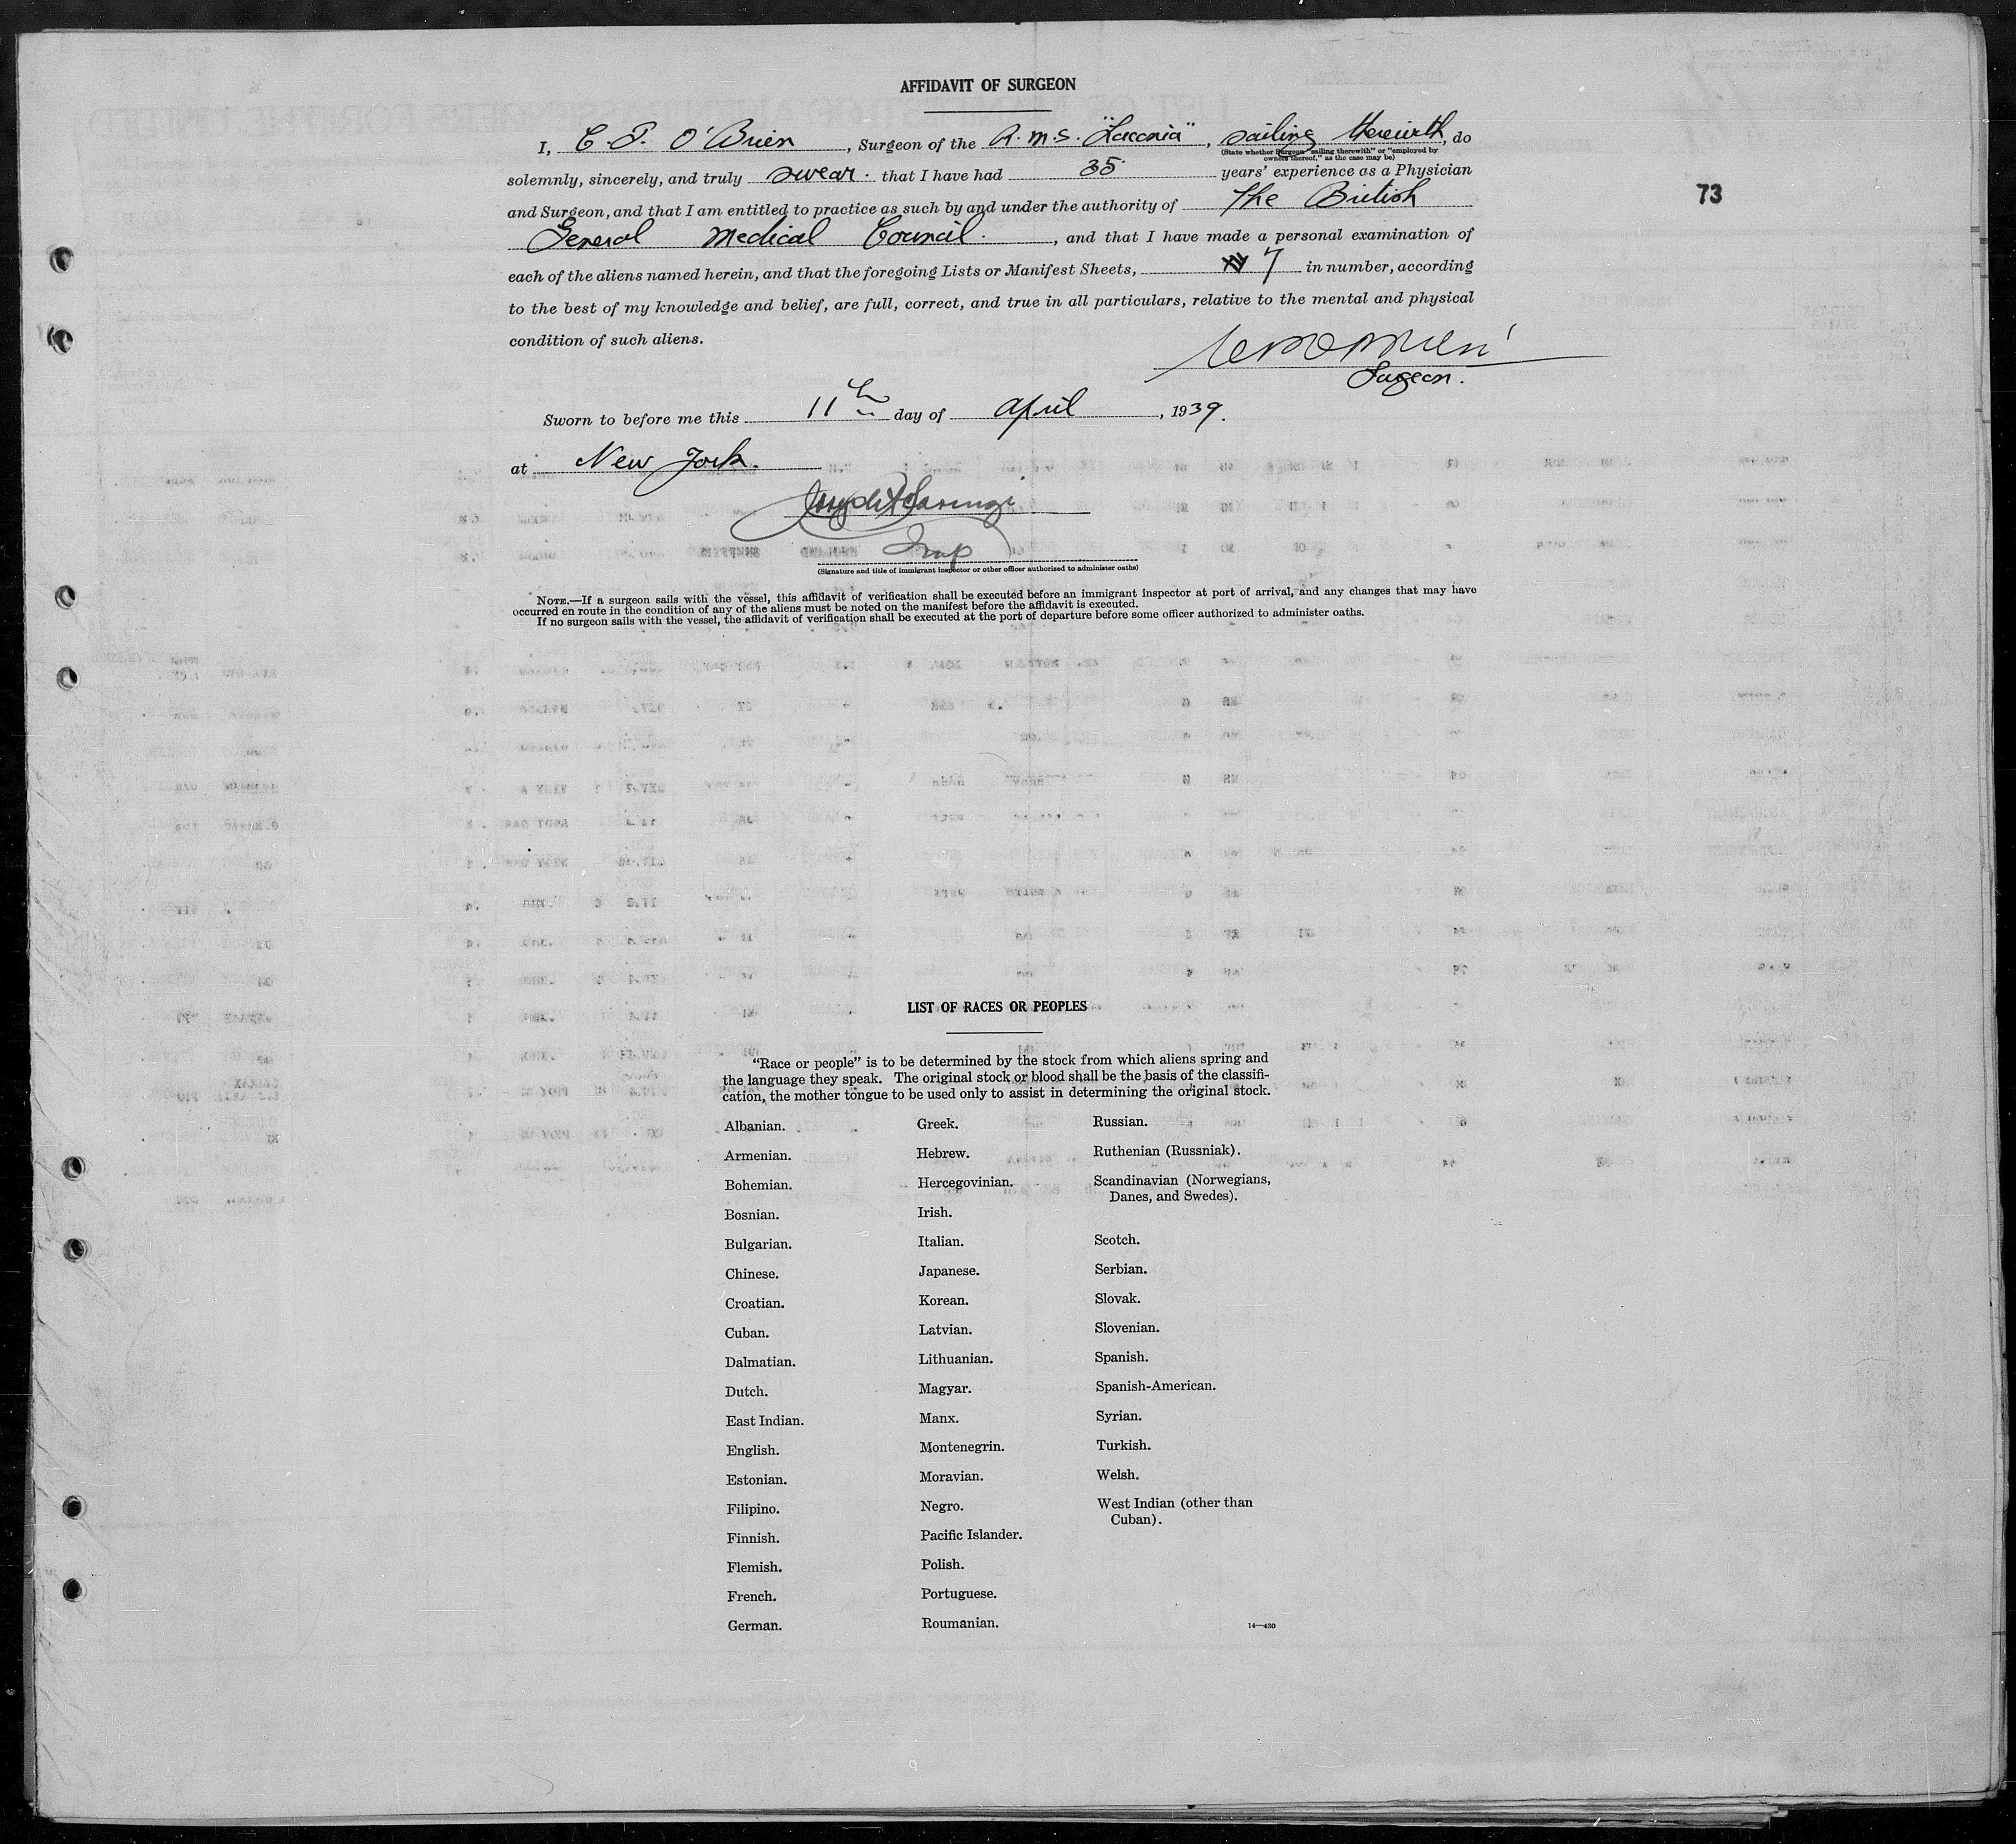 AFFIDAVIT OF SURGEON
I, C. T. O'Brien, Surgeon of the R.M.S. "Laconia", sailing therewith, do
(State whether Surgeon "sailing therewith" or "employed by
owners thereof," as the case may be)
solemnly, sincerely, and truly swear. that I have had 35 years' experience as a Physician
73
and Surgeon, and that I am entitled to practice as such by and under the authority of The British
General Medical Council., and that I have made a personal examination of
each of the aliens named herein, and that the foregoing Lists or Manifest Sheets, 7 in number, according
to the best of my knowledge and belief, are full, correct, and true in all particulars, relative to the mental and physical
condition of such aliens.
Surgeon.
Sworn to before me this 11th day of April, 1939.
at New York.
Insp
(Signature and title of immigrant inspector or other officer authorized to administer oaths)
NOTE.—If a surgeon sails with the vessel, this affidavit of verification shall be executed before an immigrant inspector at port of arrival, and any changes that may have
occurred en route in the condition of any of the aliens must be noted on the manifest before the affidavit is executed.
If no surgeon sails with the vessel, the affidavit of verification shall be executed at the port of departure before some officer authorized to administer oaths.
LIST OF RACES OR PEOPLES
"Race or people" is to be determined by the stock from which aliens spring and
the language they speak. The original stock or blood shall be the basis of the classifi-
cation, the mother tongue to be used only to assist in determining the original stock.
Albanian.
Armenian.
Bohemian.
Bosnian.
Bulgarian.
Chinese.
Croatian.
Cuban.
Dalmatian.
Dutch.
East Indian.
English.
Estonian.
Filipino.
Finnish.
Flemish.
French.
German.
Greek.
Hebrew.
Hercegovinian.
Irish.
Italian.
Japanese.
Korean.
Latvian.
Lithuanian.
Magyar.
Manx.
Montenegrin.
Moravian.
Negro.
Pacific Islander.
Polish.
Portuguese.
Roumanian.
Russian.
Ruthenian (Russniak).
Scandinavian (Norwegians,
Danes, and Swedes).
Scotch.
Serbian.
Slovak.
Slovenian.
Spanish.
Spanish-American.
Syrian.
Turkish.
Welsh.
West Indian (other than
Cuban).
14—430